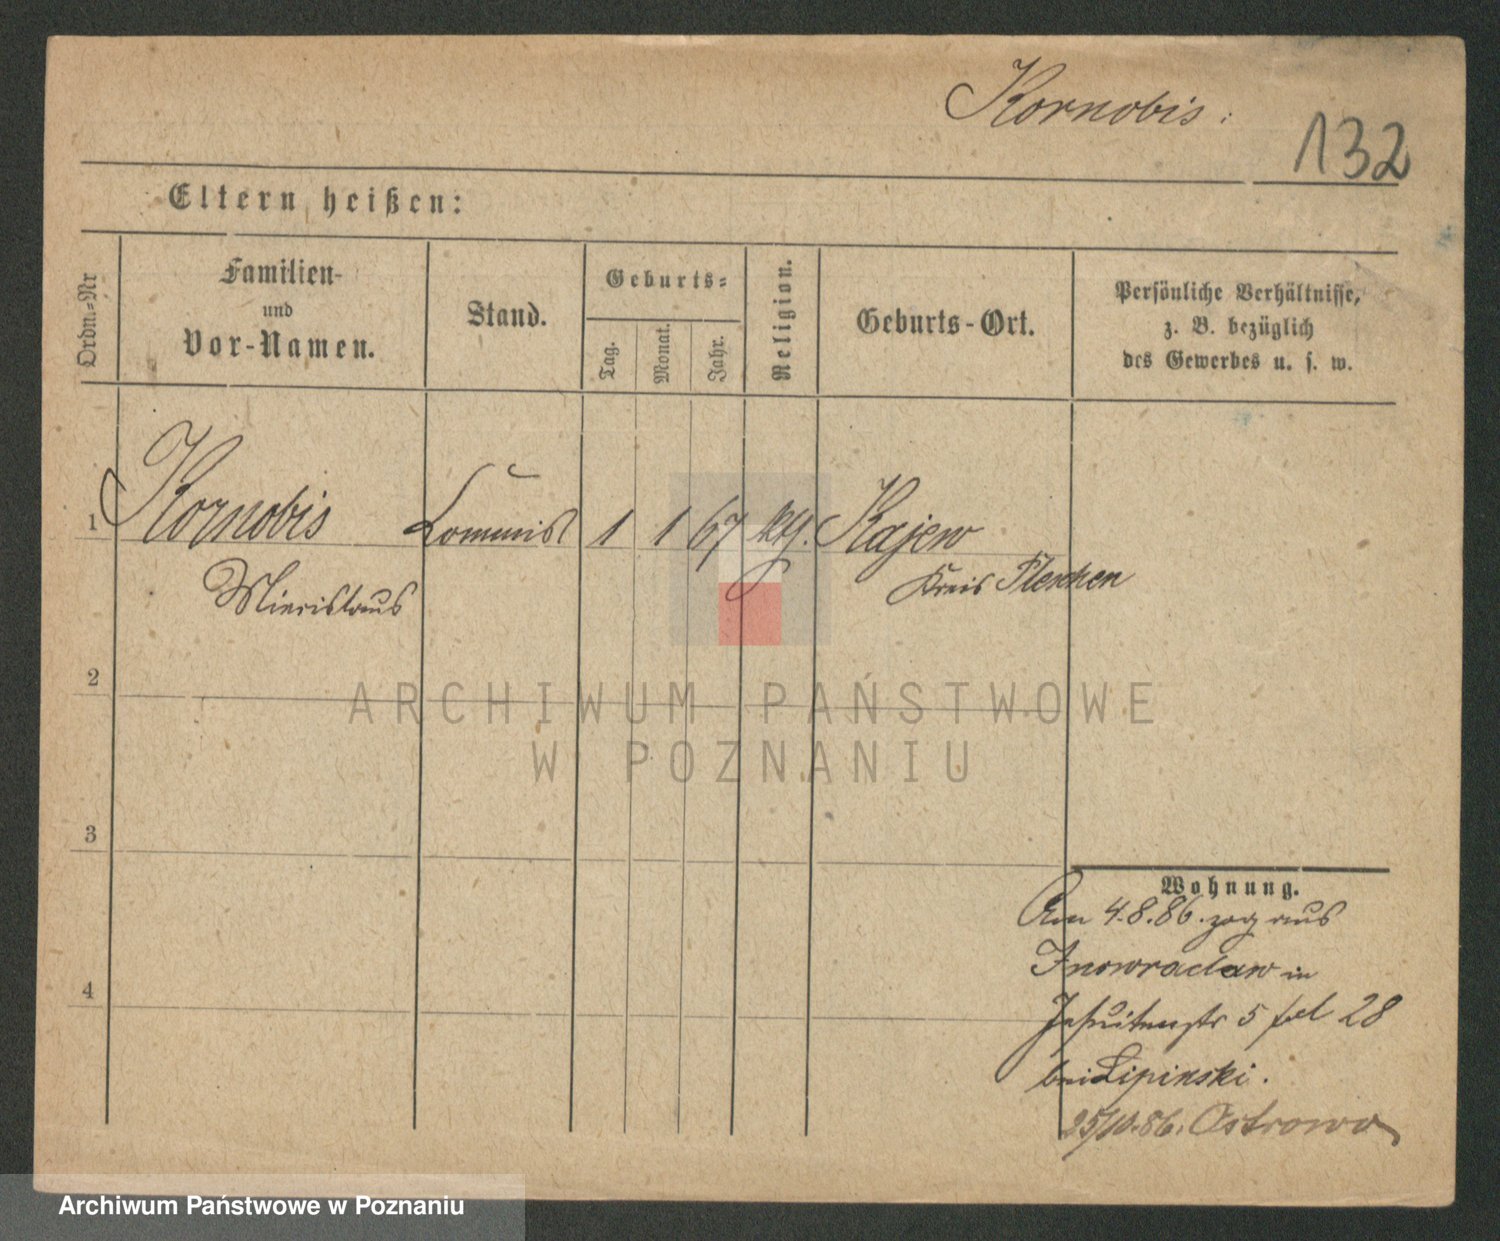 Kornobis.
132
Eltern heißen:
Ordn.-Nr
Familien-
und
Vor-Namen.
Stand.
Geburts-
Tag.
Monat.
Jahr.
Religion.
Geburts-Ort.
Persönliche Verhältnisse,
z. B. bezüglich
des Gewerbes u. s. w.
1 Kornobis Commis 1 1 67 kth. Kajew
Kreis Pleschen
Miecislaus
2
3
4
Wohnung.
Am 4.8.86. zog aus
Inowraclaw in
Jesuitenstr 5 fol 28
bei Lipinski.
25/10.86. Ostrowo
ARCHIWUM PAŃSTWOWE
W POZNANIU
Archiwum Państwowe w Poznaniu